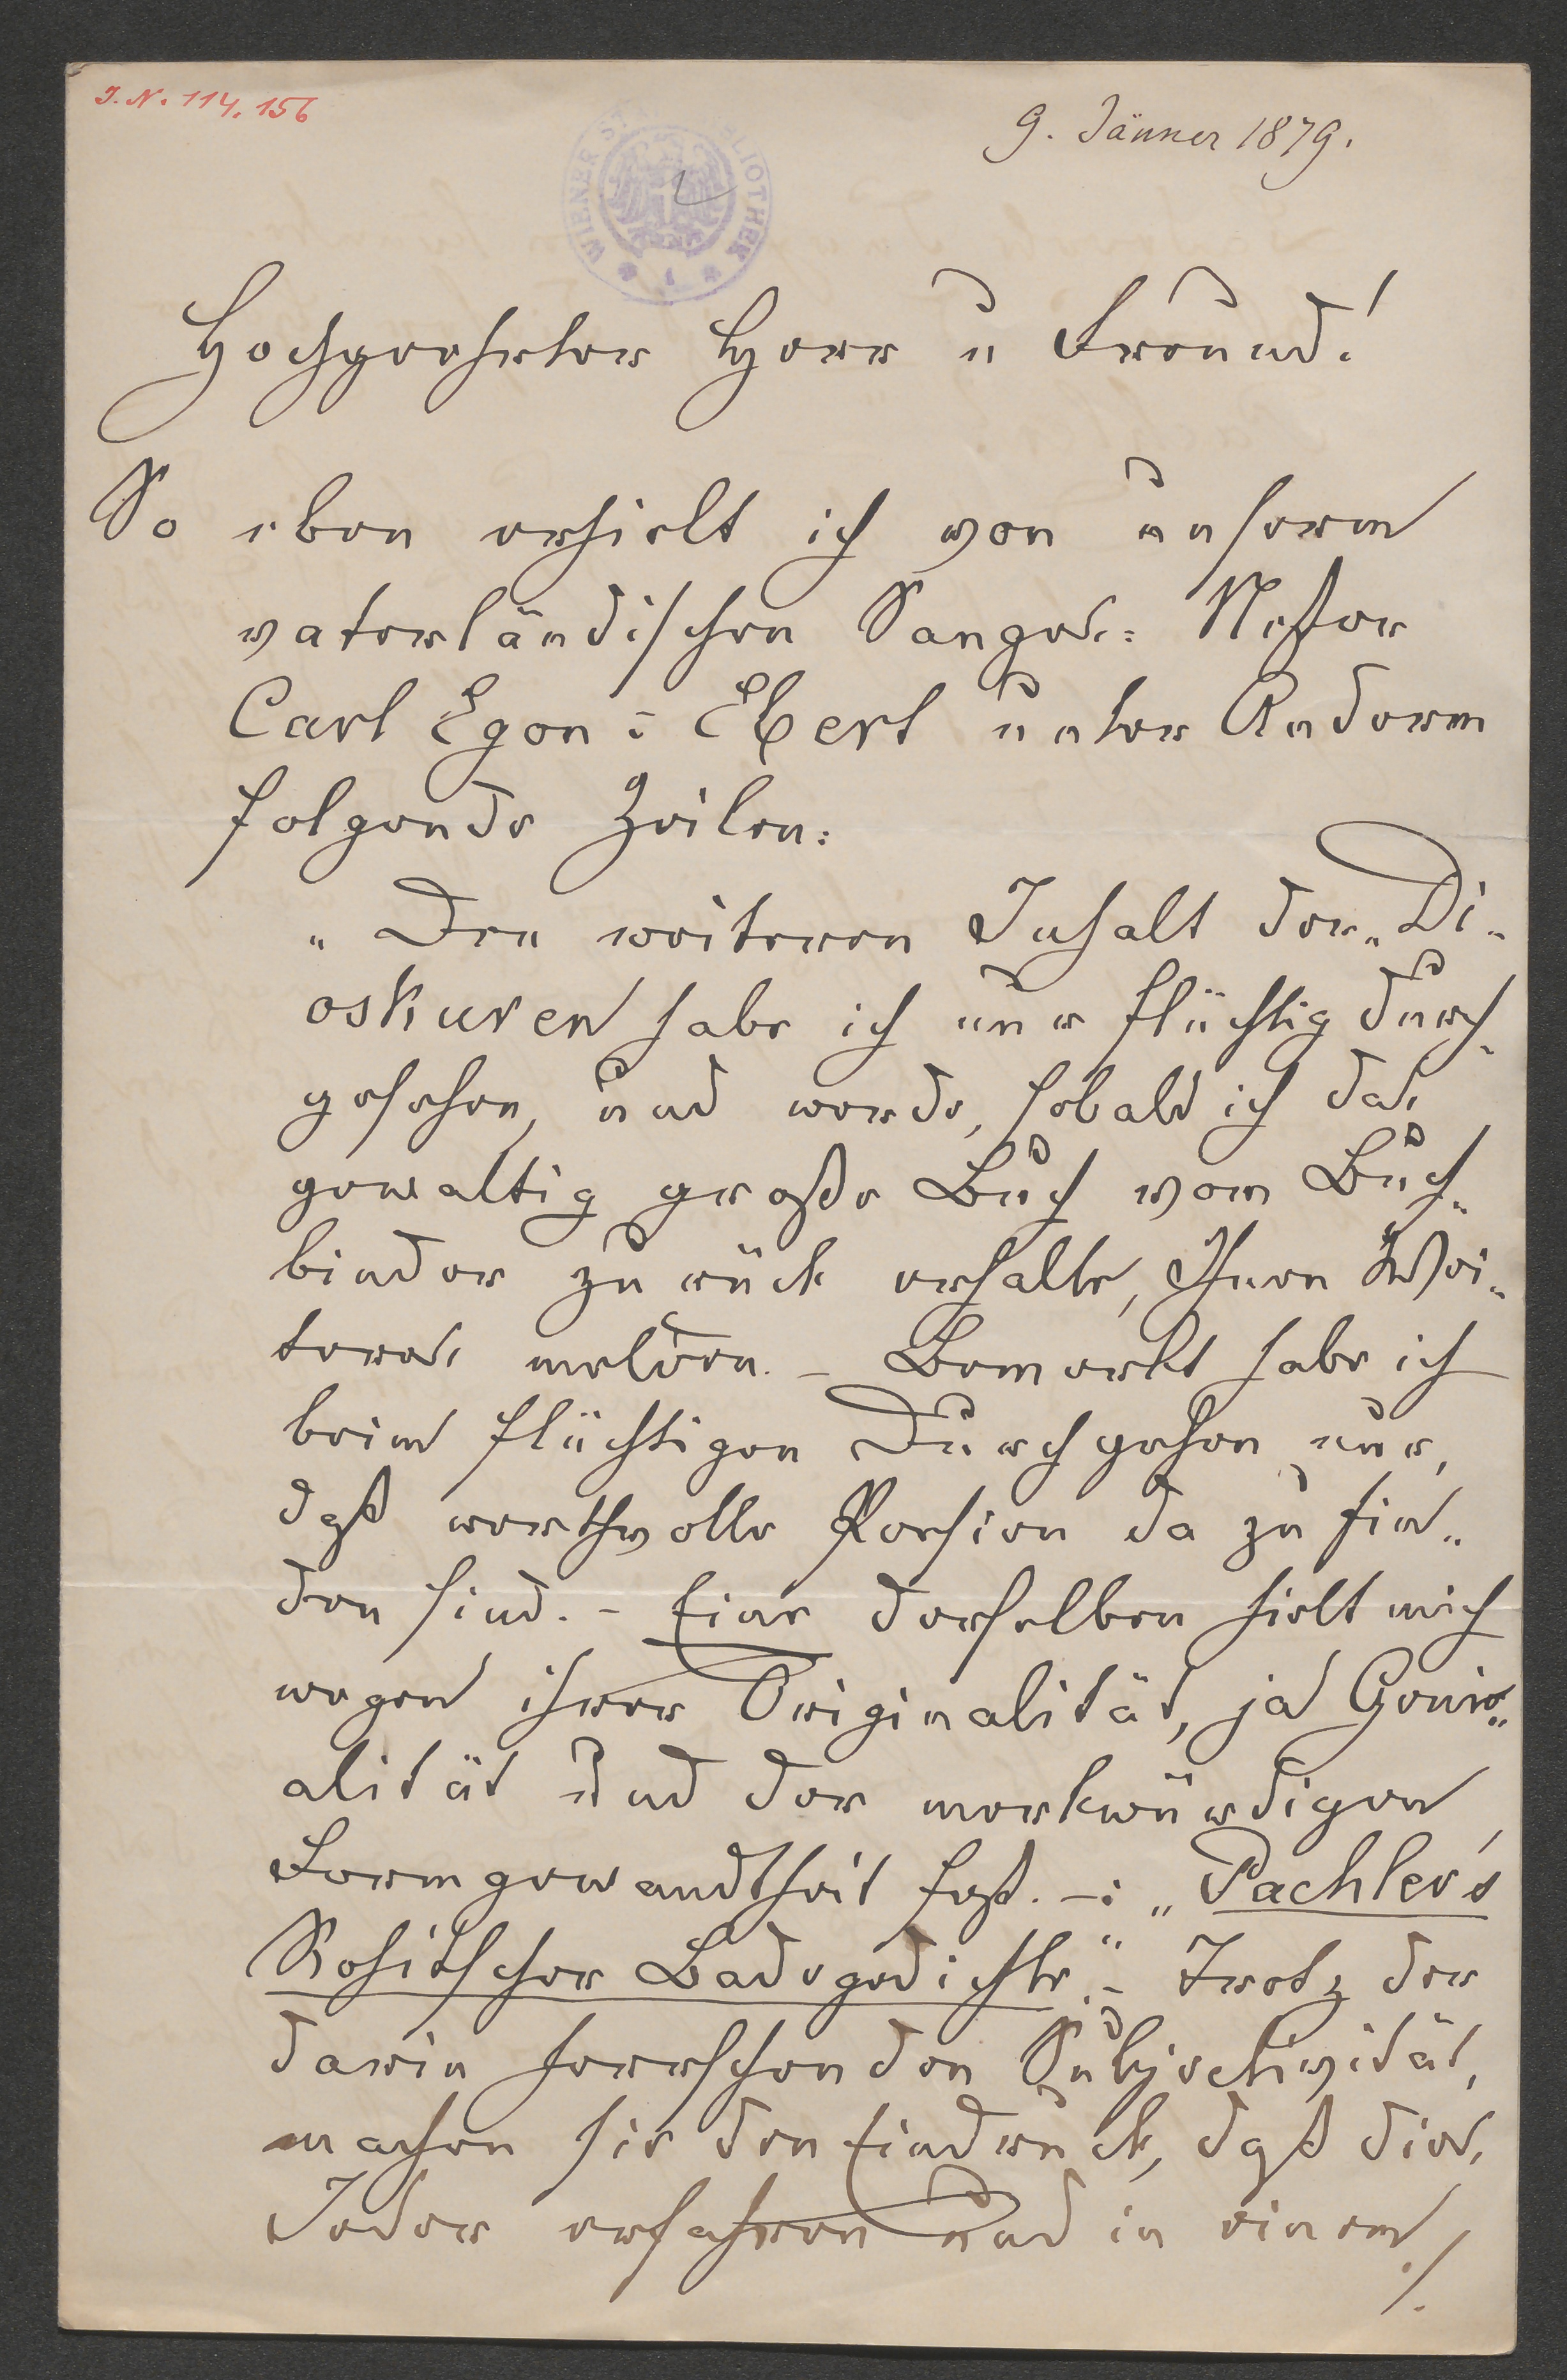 I. N. 114.156
9. Jänner 1879.
WIENER STADTBIBLIOTHEK
Hochgeehrter Herr u Freund!
So eben erhielt ich von unserm
vaterländischen Sanges-Nestor
Carl Egon - Ebert unter Anderm
folgende Zeilen:
"Den weiteren Inhalt der "Di-
oskuren habe ich nur flüchtig durch-
gesehen, und werde, sobald ich das
gewaltig große Buch vom Buch-
binder zurück erhalte, Ihnen Wei-
teres melden. – Bemerkt habe ich
beim flüchtigen Durchgehen nur,
daß werthvolle Poesien da zu fin-
den sind. – Eine derselben hielt mich
wegen ihrer Originalität, ja Geni-
alität und der merkwürdigen
Formgewandtheit fest. –: "Pachler's
Rohitscher Badegedichte". – Trotz der
darin herrschenden Subjectivität,
machen sie den Eindruck, daß dies
Jeder erfahren und in einem
./.